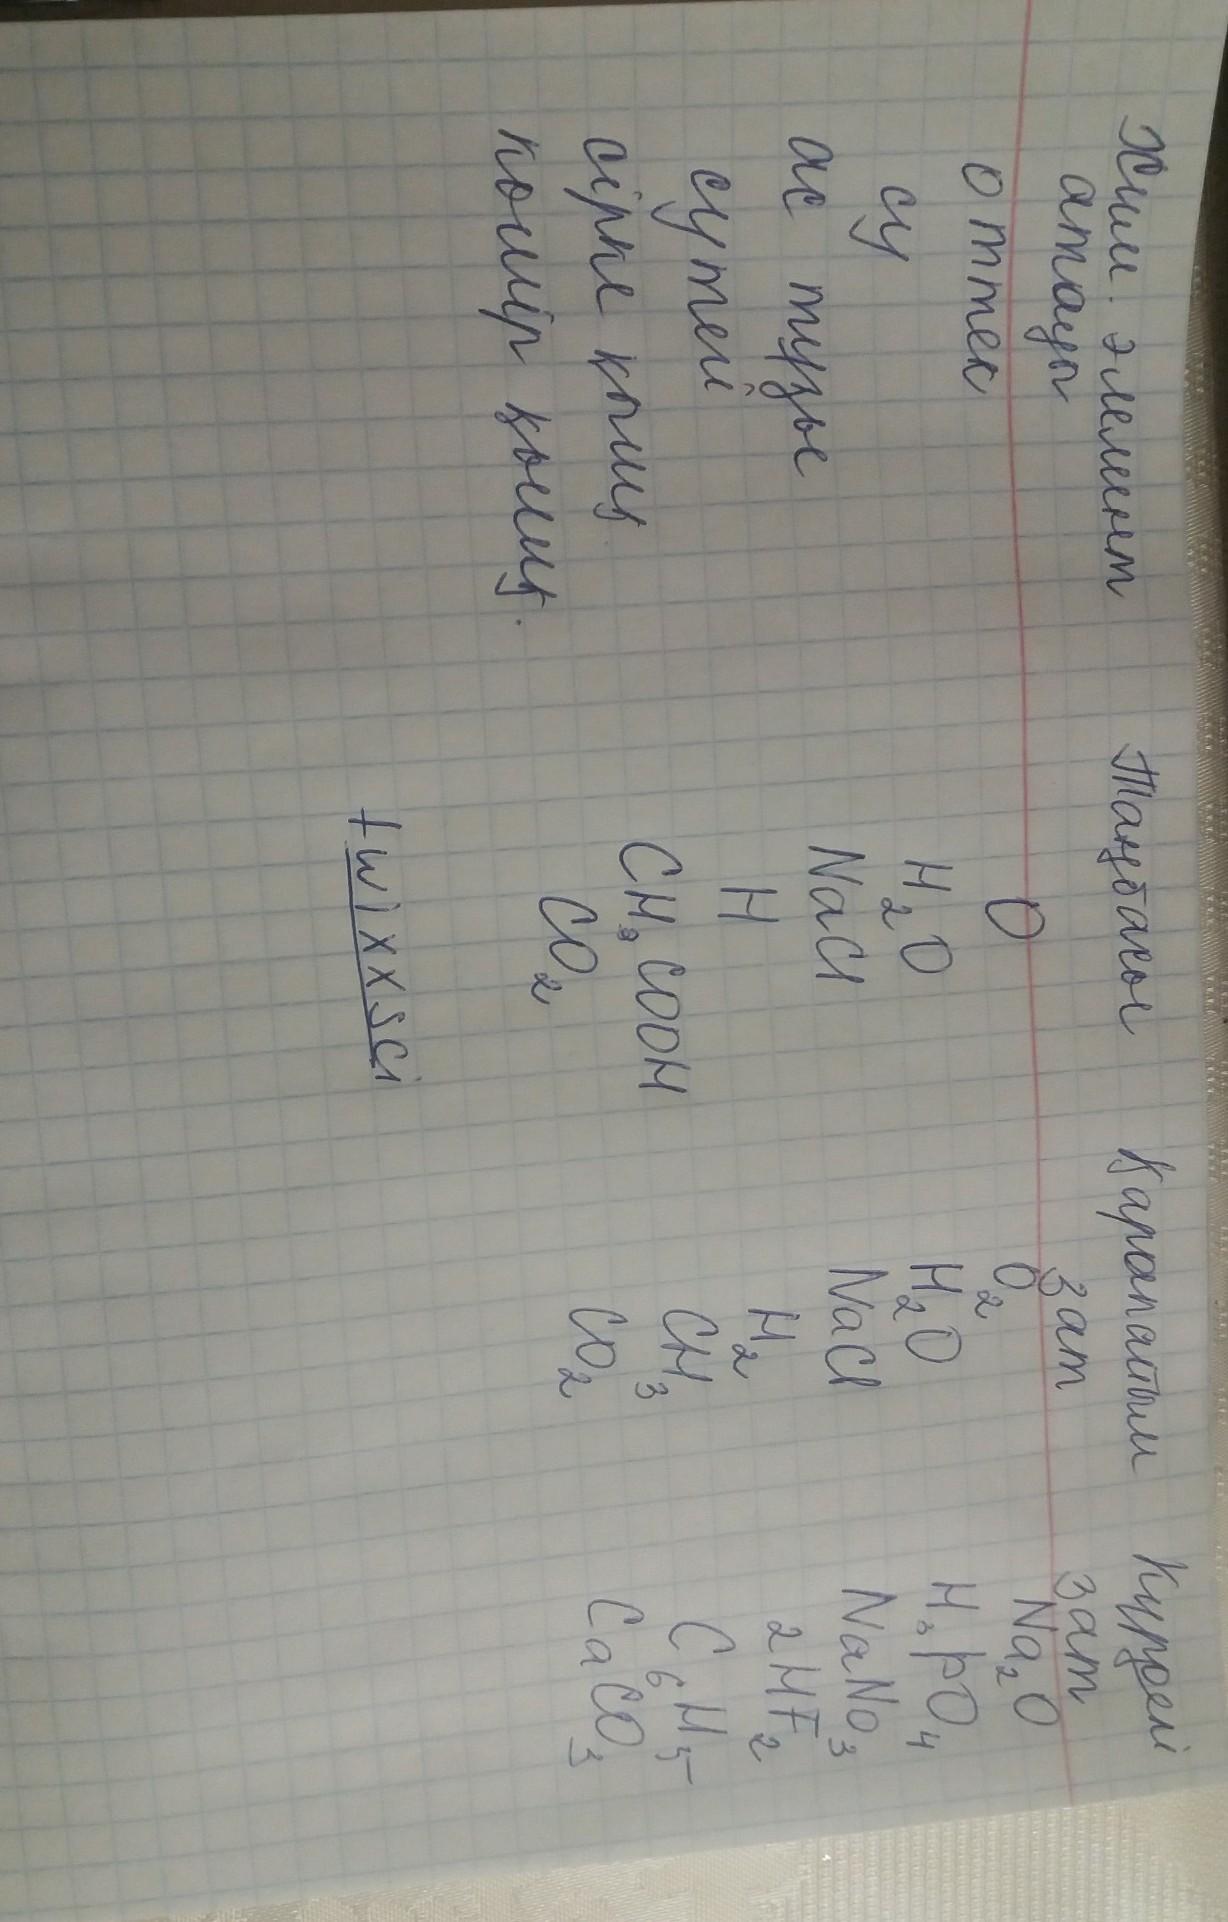 Хим. элемент Таңбасы Қарапайым Күрделі
атауы зат зат
оттек O O2 Na2O
су H2O H2O H3PO4
ас тұзы NaCl NaCl NaNO3
сутеи H H2 2HF2
сірке қыш CH3COOH CH3 C6H5
көмір қыш. CO2 CO2 CaCO3
twixxsci